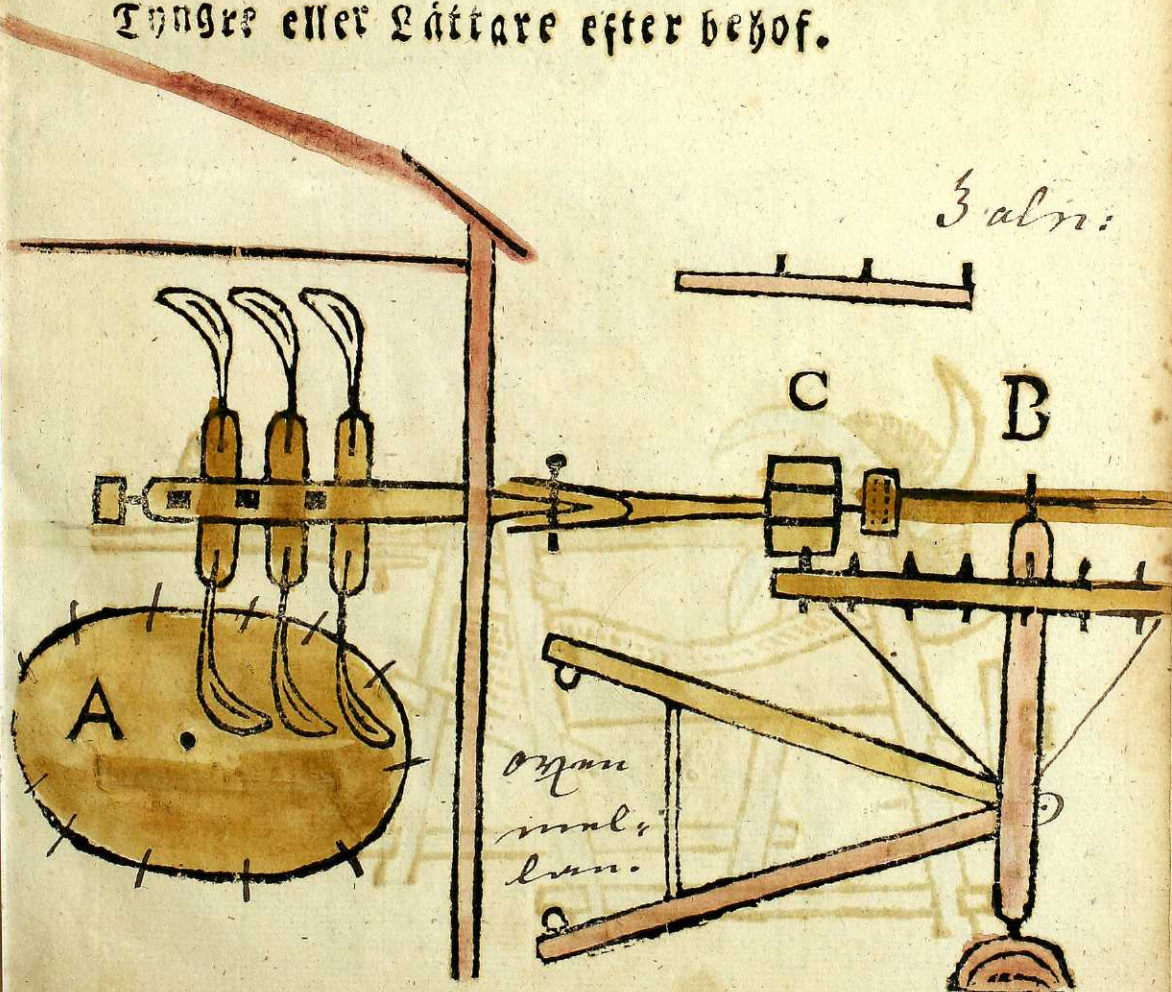 Tyngre eller Lättare efter behof.
3 aln:
C
B
A
oxen
mel-
lan.